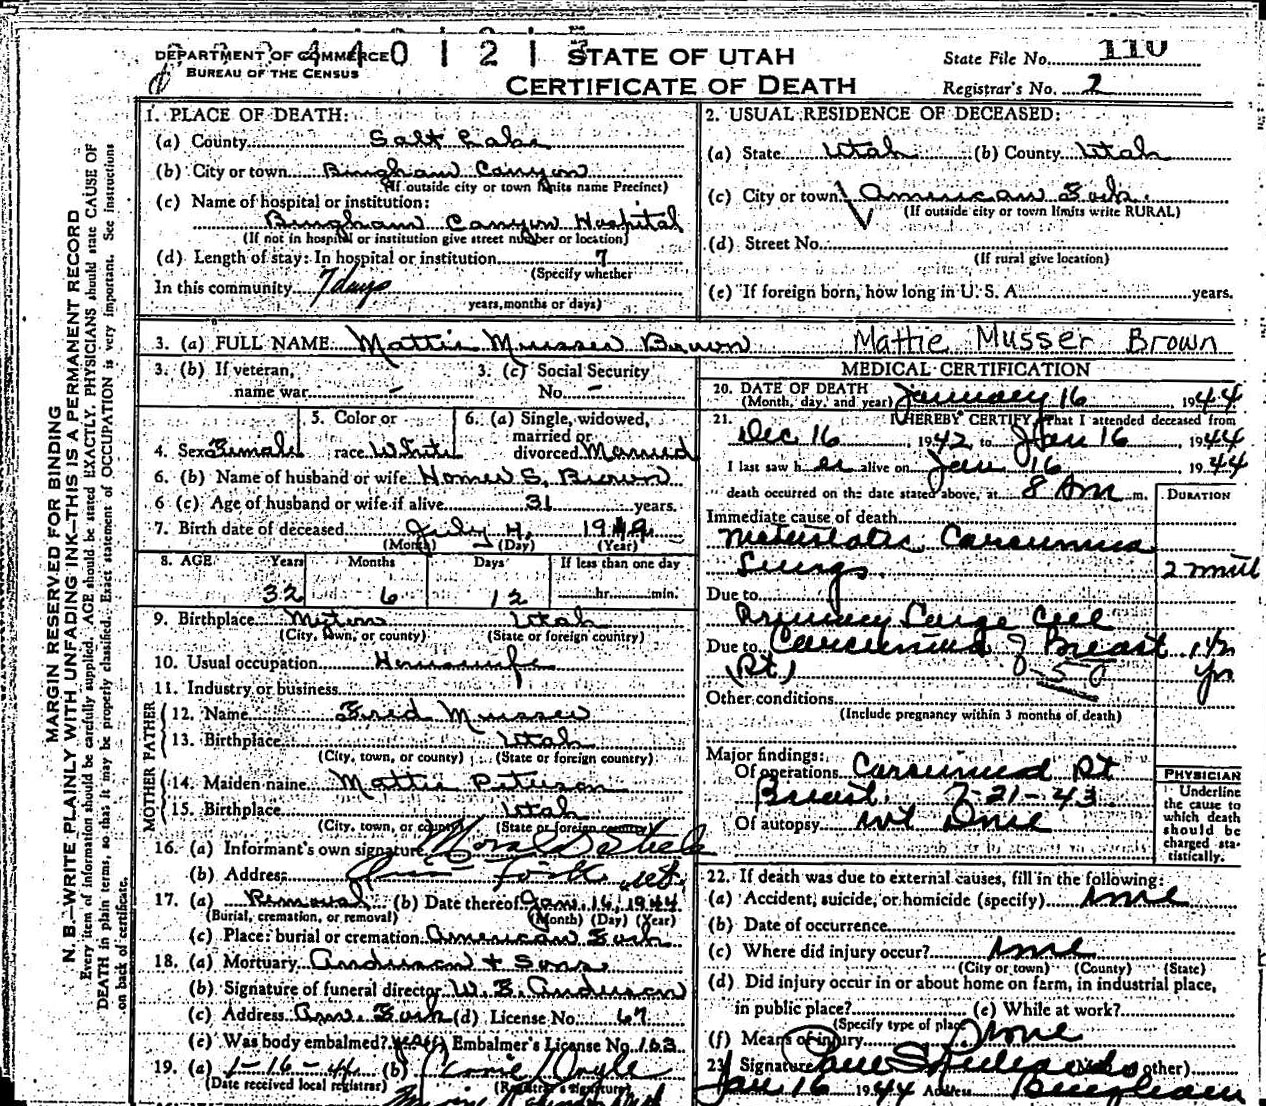 DEPARTMENT OF COMMERCE
BUREAU OF THE CENSUS
4 4 0 1 2 1 3
STATE OF UTAH
CERTIFICATE OF DEATH
State File No. 110
Registrar's No. 2
MARGIN RESERVED FOR BINDING
N. B.—WRITE PLAINLY WITH UNFADING INK—THIS IS A PERMANENT RECORD
Every item of information should be carefully supplied. AGE should be stated EXACTLY. PHYSICIANS should state CAUSE OF
DEATH in plain terms, so that it may be properly classified. Exact statement of OCCUPATION is very important. See instructions
on back of certificate.
1. PLACE OF DEATH:
(a) County Salt Lake
(b) City or town Bingham Canyon
(If outside city or town limits name Precinct)
(c) Name of hospital or institution:
Bingham Canyon Hospital
(If not in hospital or institution give street number or location)
(d) Length of stay: In hospital or institution 7
(Specify whether
In this community 7 days
years, months or days)
2. USUAL RESIDENCE OF DECEASED:
(a) State Utah (b) County Utah
(c) City or town American Fork
(If outside city or town limits write RURAL)
(d) Street No.
(If rural give location)
(e) If foreign born, how long in U. S. A. - years.
3. (a) FULL NAME Mattie Musser Brown Mattie Musser Brown
3. (b) If veteran, name war - 3. (c) Social Security No. -
4. Sex Female 5. Color or race White 6. (a) Single, widowed, married or divorced Married
6. (b) Name of husband or wife Homer S. Brown
6 (c) Age of husband or wife if alive 31 years.
7. Birth date of deceased July 4, 19
(Month) (Day) (Year)
8. AGE Years Months Days If less than one day
32 6 12 hr. min.
9. Birthplace Myton Utah
(City, town, or county) (State or foreign country)
10. Usual occupation Housewife
11. Industry or business
FATHER
12. Name Fred Musser
13. Birthplace Utah
(City, town, or county) (State or foreign country)
MOTHER
14. Maiden name Mattie Peterson
15. Birthplace Utah
(City, town, or county) (State or foreign country)
16. (a) Informant's own signature
(b) Address Am Fork Ut.
17. (a) Removal (b) Date thereof Jan. 16, 1944
(Burial, cremation, or removal) (Month) (Day) (Year)
(c) Place: burial or cremation American Fork
18. (a) Mortuary Anderson & Sons
(b) Signature of funeral director W. E. Anderson
(c) Address Am. Fork (d) License No. 67
(e) Was body embalmed? yes Embalmer's License No. 163
19. (a) 1-16-44 (b)
(Date received local registrar) (Registrar's signature)
MEDICAL CERTIFICATION
20. DATE OF DEATH
(Month, day, and year) January 16, 1944
21. I HEREBY CERTIFY, That I attended deceased from
Dec 16 1942 to Jan 16 1944
I last saw her alive on Jan 16 1944
death occurred on the date stated above, at 8 AM m. DURATION
Immediate cause of death
Metastatic Carcinoma
Lungs. 2 mnth
Due to
Primary Large Cell
Due to Carcinoma of Breast 1 1/2
(Rt) 50 yr
Other conditions
(Include pregnancy within 3 months of death)
Major findings:
Of operations Carcinoma Rt
Breast. 7-21-43
Of autopsy not Done
PHYSICIAN
Underline
the cause to
which death
should be
charged sta-
tistically.
22. If death was due to external causes, fill in the following:
(a) Accident, suicide, or homicide (specify) none
(b) Date of occurrence
(c) Where did injury occur? none
(City or town) (County) (State)
(d) Did injury occur in or about home on farm, in industrial place,
in public place? (e) While at work?
(Specify type of place)
(f) Means of injury none
23. Signature Paul S Richards (M.D. or other)
Jan 16 1944 Address Bingham